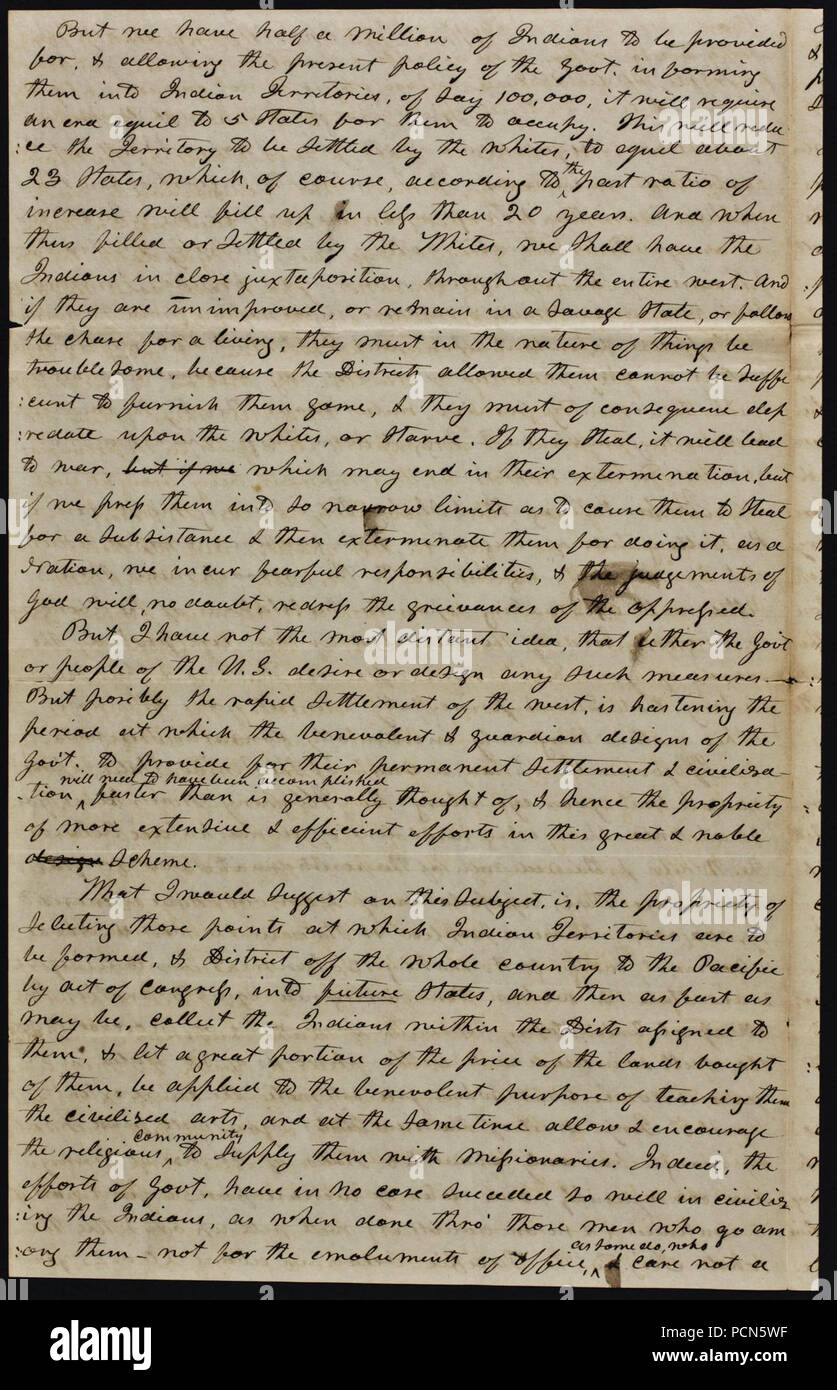 But we have half a million of Indians to be provided
for, & allowing the present policy of the Govt. in forming
them into Indian Territories, of say 100,000, it will require
an era equil to 5 States for them to occupy. This will redu-
:ce the Territory to be Settled by the whites, to equil about
23 States, which, of course, according to ^the past ratio of
increase will fill up in less than 20 years. And when
thus filled or Settled by the Whites, we Shall have the
Indians in close juxtaposition, throughout the entire west. And
if they are unimproved, or remain in a Savage State, or follow
the chase for a living, they must in the nature of things be
troublesome, because the Districts allowed them cannot be Suffi
:cent to furnish them game, & they must of consequence dep
:redate upon the whites, or Starve. If they Steal, it will lead
to war, but if we which may end in their extermenation, but
if we press them into so narrow limits as to cause them to Steal
for a Subsistance & then exterminate them for doing it, as a
Nation, we incur fearful responsibilities, & the judgements of
God will, no doubt, redress the grievances of the oppressed.
But I have not the most distant idea, that either the Govt
or people of the U.S. desire or design any such measures.
But posibly the rapid Settlement of the west, is hastening the
period at which the benevolent & guardian designs of the
Gov't. to provide for their permanent Settlement & civiliza-
will need to have been accomplished
-tion ^ faster than is generally thought of, & hence the propriety
of more extensive & efficient efforts in this great & noble
design Scheme.
What I would Suggest on this Subject, is, the propriety of
Selecting those points at which Indian Territories are to
be formed, & District off the whole country to the Pacific
by act of Congress, into future States, and then as fast as
may be, collect the Indians within the Dists assigned to
them, & let a great portion of the price of the lands bought
of them, be applied to the benevolent purpose of teaching them
the civilized arts, and at the Same time allow & encourage
community
the religious ^ to Supply them with Missionaries. Indeed, the
efforts of Govt, have in no case Succeded so well in civiliz
:ing the Indians, as when done thro' those men who go am
as some do, who
:ong them – not for the emoluments of office, ^ & care not a
alamy
Image ID: PCN5WF
www.alamy.com